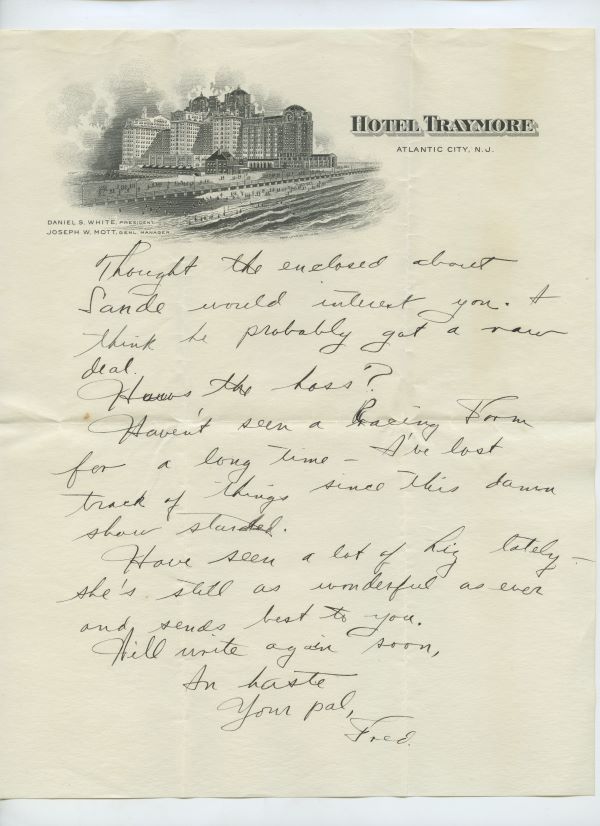 HOTEL TRAYMORE
ATLANTIC CITY, N.J.
DANIEL S. WHITE, PRESIDENT.
JOSEPH W. MOTT, GENL. MANAGER.
Thought the enclosed about
Sande would interest you. I
think he probably got a raw
deal.
Hows the hoss?
Haven't seen a Racing Form
for a long time – I've lost
track of things since this damn
show started.
Have seen a lot of Liz lately –
she's still as wonderful as ever
and sends best to you.
Will write again soon,
In haste
Your pal,
Fred.